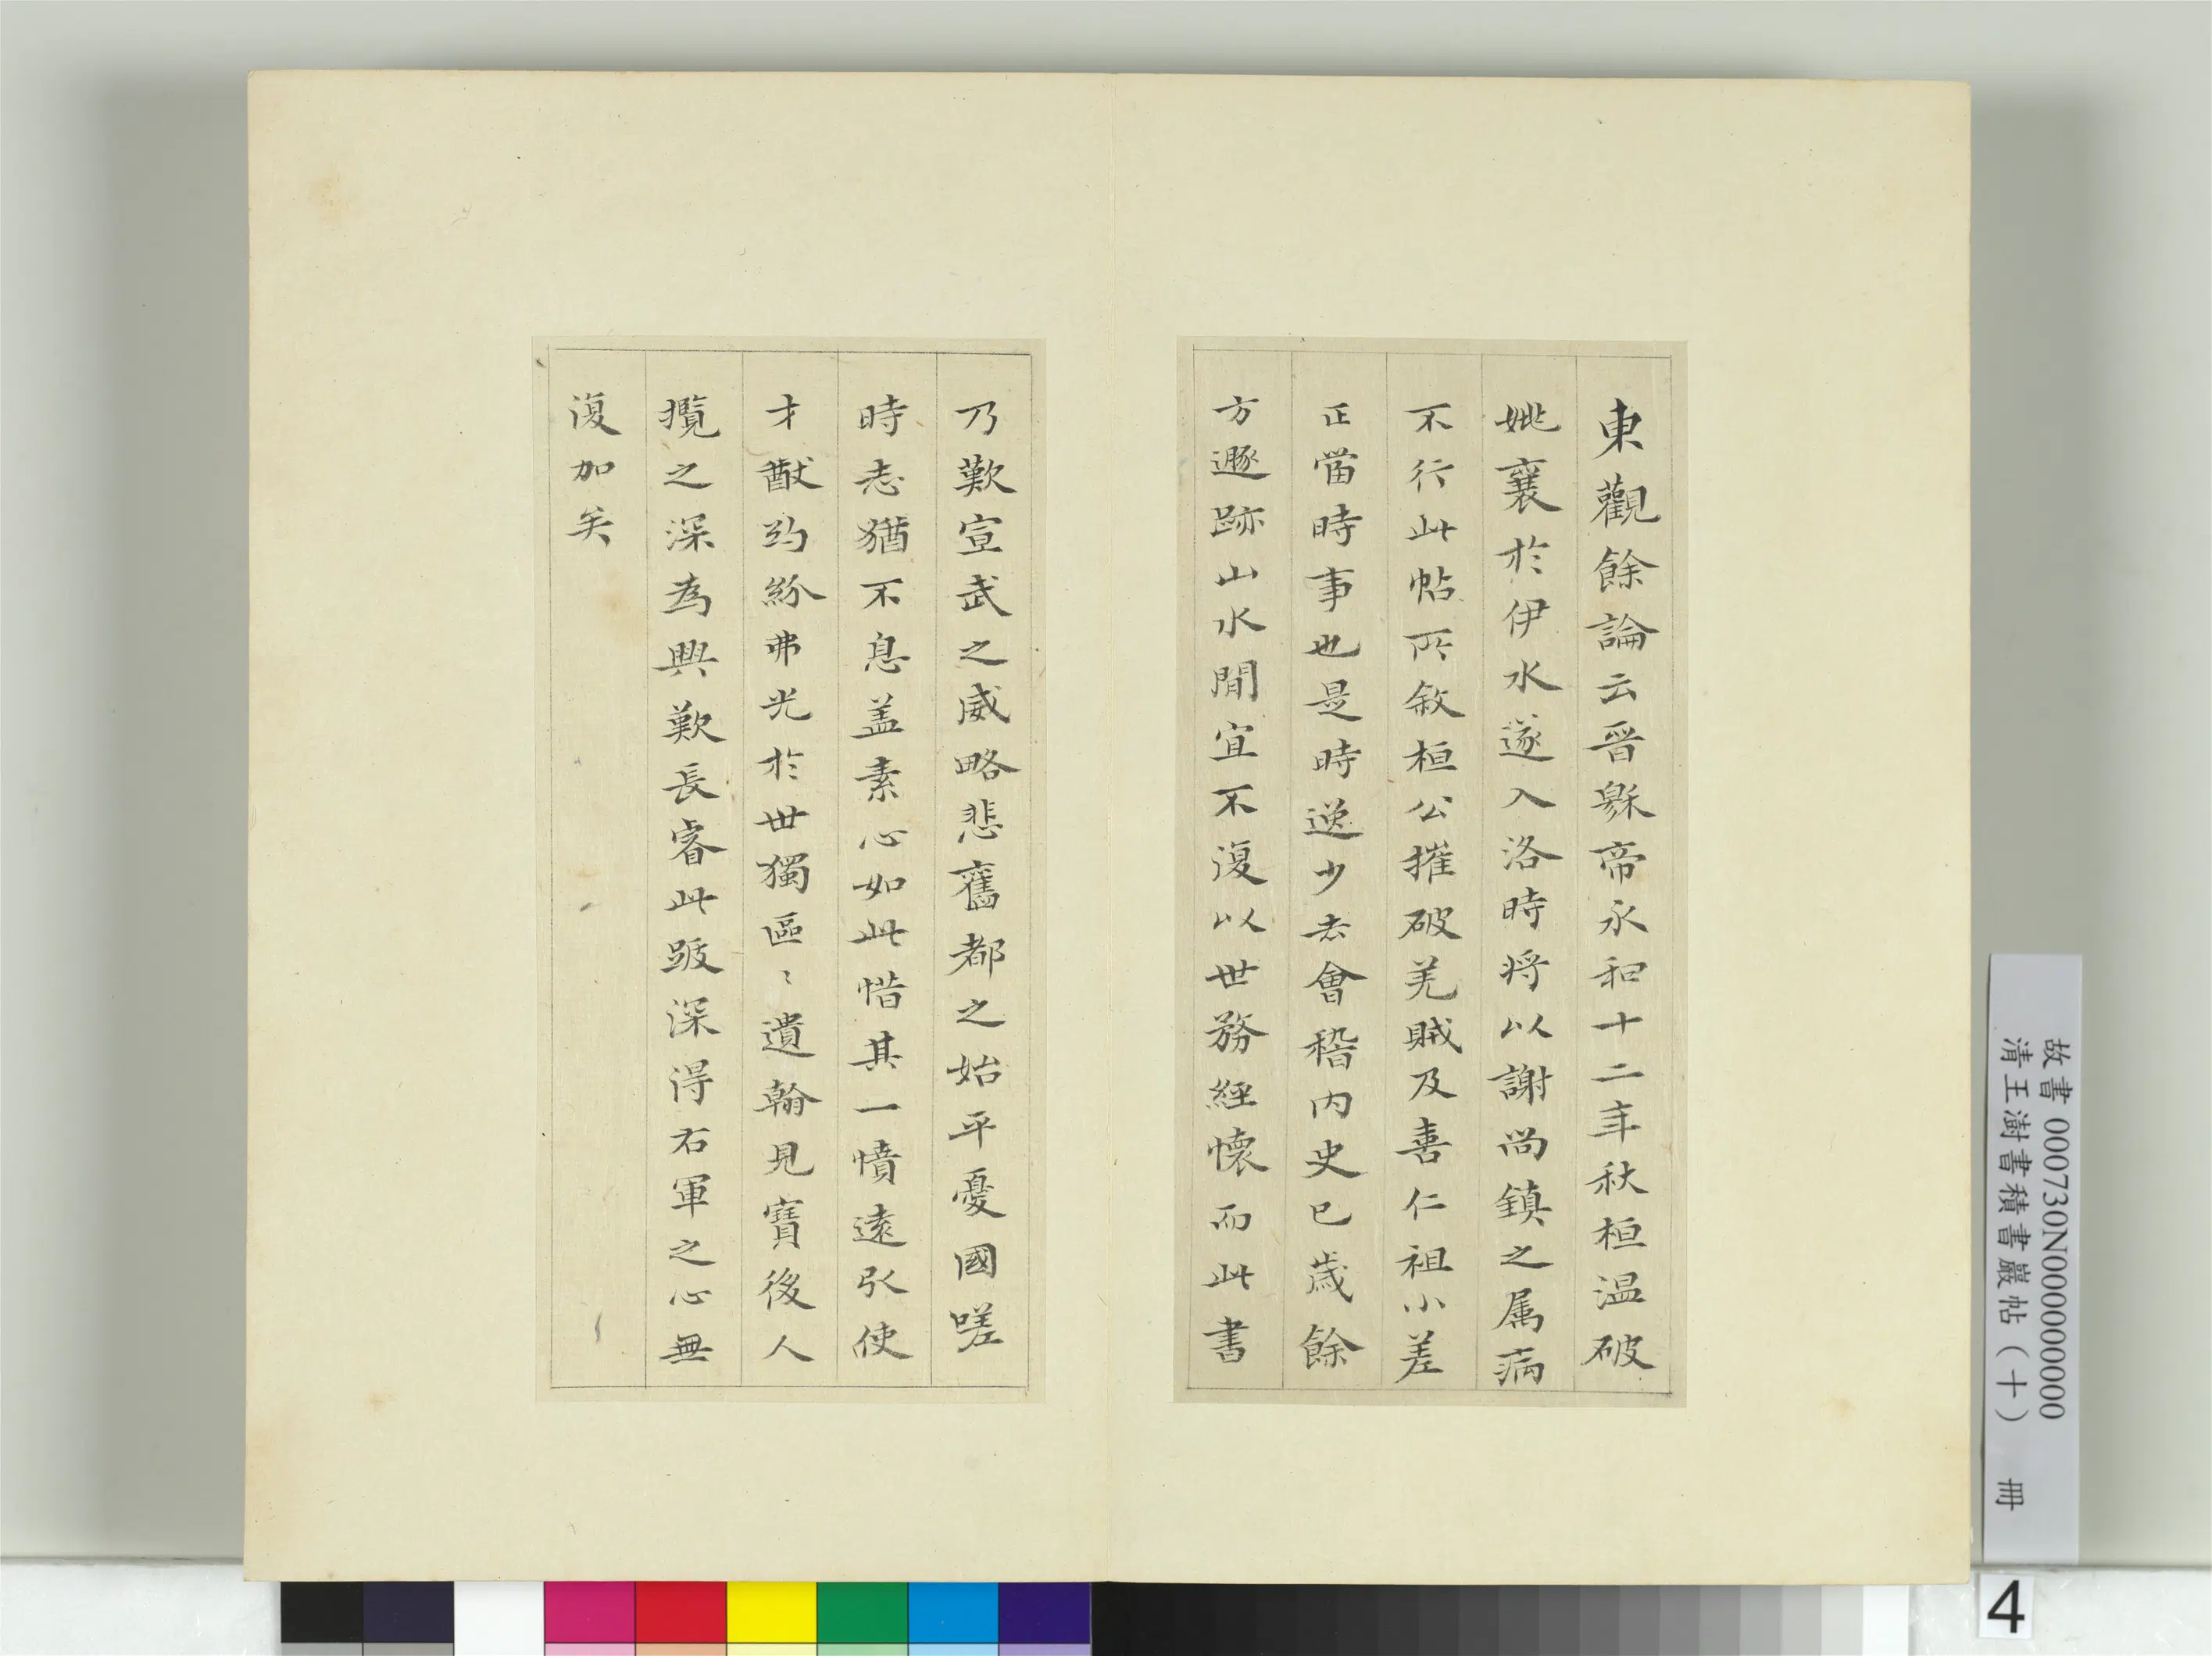 東觀餘論云晉穆帝永和十二年秋桓温破
姚襄於伊水遂入洛時將以謝尚鎮之属病
不行此帖所敘桓公摧破羌賊及善仁祖小差
正當時事也是時逸少去會稽内史已歳餘
方遯跡山水閒宜不復以世務經懷而此書
乃歎宣武之威略悲舊都之始平憂國嗟
時志猶不息盖素心如此惜其一憤遠引使
才猷約紛弗光於世獨區〻遺翰見寶後人
攬之深為興歎長睿此跋深得右軍之心無
復加矣
故書 000730N000000000
清王澍書積書巖帖（十） 冊
4